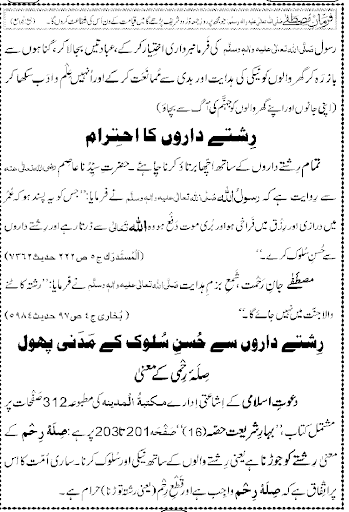 فرمانِ مصطفےٰ صلی اللہ تعالیٰ علیہ والہ وسلم: جو مجھ پر روزِ جمعہ دُرود شریف پڑھے گا میں قیامت کے دن اُس کی شفاعت کروں گا۔
رسول صلَّی اللہ تعالٰی علیہ والہٖ وسلَّم کی فرمانبرداری اختیار کر کے، عبادتیں بجا لا کر، گناہوں سے
باز رہ کر گھر والوں کو نیکی کی ہدایت اور بدی سے مُمانَعت کر کے اور انہیں عِلْم و ادب سکھا کر
(اپنی جانوں اور اپنے گھر والوں کو جہنَّم کی آگ سے بچاؤ)
رِشتے داروں کا احتِرام
تمام رِشتے داروں کے ساتھ اچّھا برتاؤ کرنا چاہئے۔ حضرتِ سیِّدُنا عاصم رضی اللہ تعالٰی عنہ
سے روایت ہے کہ رسولُ اللہ صلَّی اللہ تعالٰی علیہ والہٖ وسلَّم نے فرمایا: ’’جس کو یہ پسند ہو کہ عُمْر
میں درازی اور رِزْق میں فَراخی ہو اور بُری موت دَفْع ہو وہ اللہ تعالٰی سے ڈرتا رہے اور رِشتے داروں
سے حُسنِ سُلوک کرے۔‘‘ (اَلْمُسْتَدْرَك ج٥ ص٢٢٢ حدیث ٧٣٦٢)
مصطَفٰے جانِ رَحْمت شمعِ بزمِ ہدایت صلَّی اللہ تعالٰی علیہ والہٖ وسلَّم نے فرمایا: ’’رشتہ کاٹنے
والا جنّت میں نہیں جائے گا۔‘‘ (بُخاری ج٤ ص٩٧ حدیث ٥٩٨٤)
رِشتے داروں سے حُسنِ سُلوک کے مَدَنی پھول
صِلَۂ رِحْمی کے معنٰی
دعوتِ اسلامی کے اِشاعَتی ادارے مکتبۃُ المدینہ کی مطبوعہ 312 صَفْحات پر
مشتمل کتاب، ’’بہارِ شریعت حصّہ (16)‘‘ صَفْحَہ 201 تا 203 پر ہے: صِلَۂ رِحْم کے
معنی رِشتے کو جوڑنا ہے یعنی رِشتے والوں کے ساتھ نیکی اور سُلوک کرنا۔ ساری اُمّت کا اس
پر اتِّفاق ہے کہ صِلَۂ رِحْم واجِب ہے اور قَطْعِ رِحْم (یعنی رشتہ توڑنا) حرام ہے۔